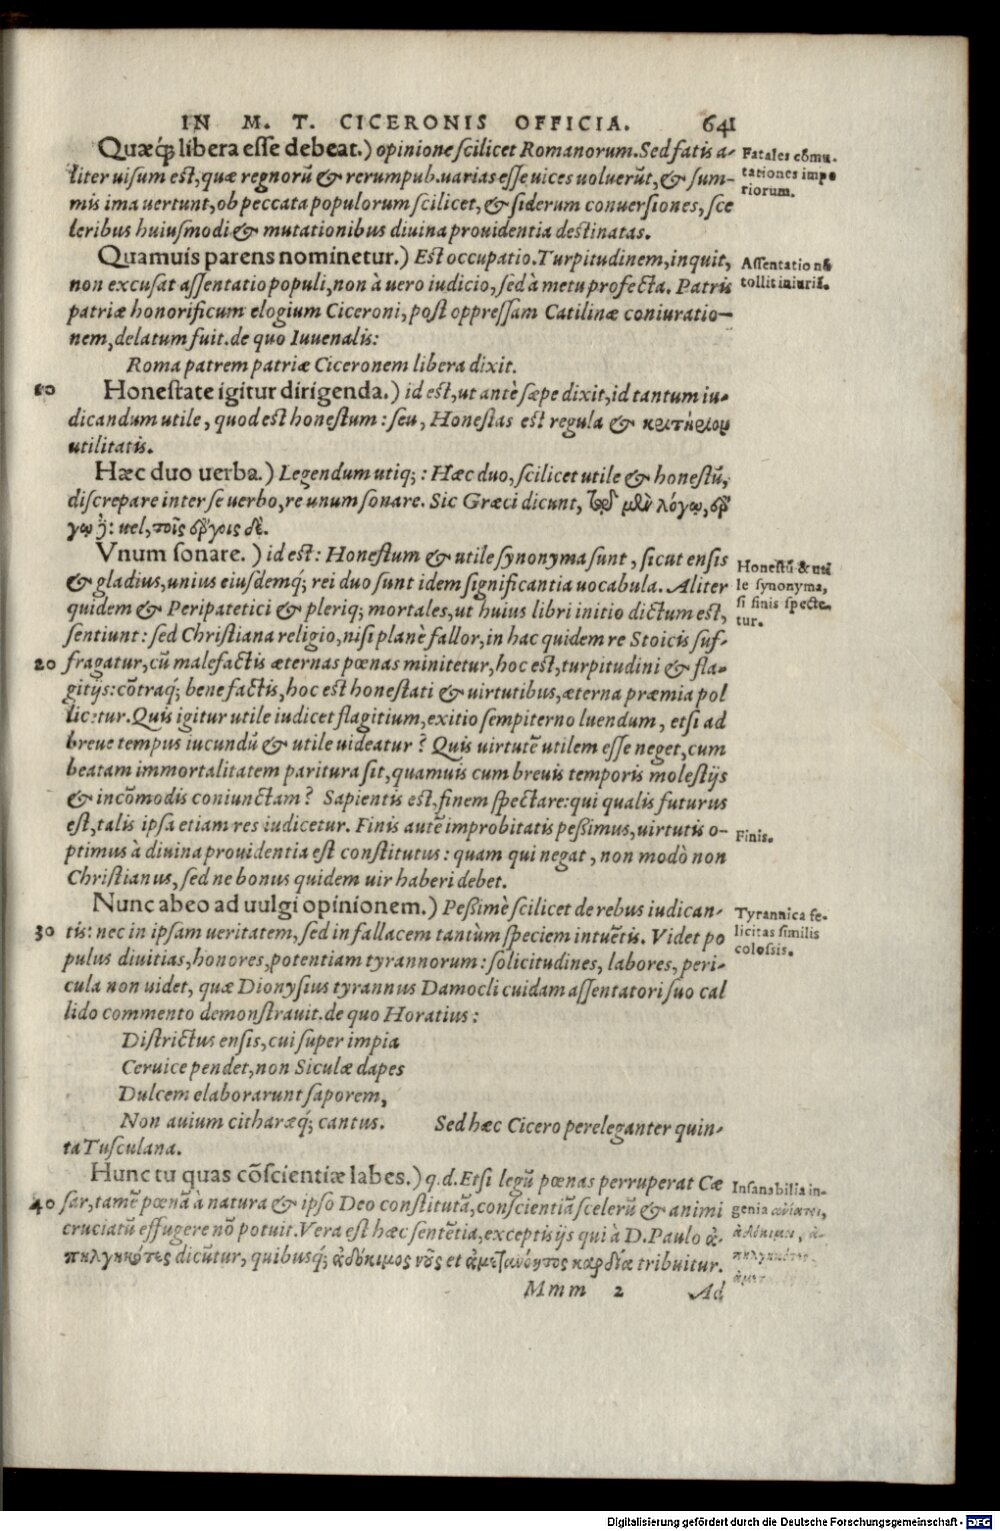 IN M. T. CICERONIS OFFICIA. 641
Quæq́; libera esse debeat.) opinione scilicet Romanorum. Sed fatis a-
liter uisum est, quæ regnorũ & rerumpub. uarias esse uices uoluerũt, & sum-
mis ima uertunt, ob peccata populorum scilicet, & siderum conuersiones, sce
leribus huiusmodi & mutationibus diuina prouidentia destinatas.
Fatales cõmu.
tationes impe
riorum.
Quamuis parens nominetur.) Est occupatio. Turpitudinem, inquit,
non excusat assentatio populi, non à uero iudicio, sed à metu profecta. Patris
patriæ honorificum elogium Ciceroni, post oppressam Catilinæ coniuratio-
nem, delatum fuit. de quo Iuuenalis:
Assentatio nõ
tollit iniuriã.
Roma patrem patriæ Ciceronem libera dixit.
10 Honestate igitur dirigenda.) id est, ut antè sæpe dixit, id tantum iu-
dicandum utile, quod est honestum: seu, Honestas est regula & κριτήριον
utilitatis.
Hæc duo uerba.) Legendum utiq;: Hæc duo, scilicet utile & honestũ,
discrepare inter se uerbo, re unum sonare. Sic Græci dicunt, τῷ μὲν λόγῳ, ἔρ
γῳ ἢ: uel, τοῖς ἔργοις δὲ.
Vnum sonare.) id est: Honestum & utile synonyma sunt, sicut ensis
& gladius, unius eiusdemq́; rei duo sunt idem significantia uocabula. Aliter
quidem & Peripatetici & pleriq; mortales, ut huius libri initio dictum est,
sentiunt: sed Christiana religio, nisi planè fallor, in hac quidem re Stoicis suf-
20 fragatur, cũ malefactis æternas pœnas minitetur, hoc est, turpitudini & fla-
gitijs: cõtraq́; benefactis, hoc est honestati & uirtutibus, æterna præmia pol
licetur. Quis igitur utile iudicet flagitium, exitio sempiterno luendum, etsi ad
breue tempus iucundũ & utile uideatur? Quis uirtutẽ utilem esse neget, cum
beatam immortalitatem paritura sit, quamuis cum breuis temporis molestijs
& incõmodis coniunctam? Sapientis est, finem spectare: qui qualis futurus
est, talis ipsa etiam res iudicetur. Finis autẽ improbitatis peßimus, uirtutis o-
ptimus à diuina prouidentia est constitutus: quam qui negat, non modò non
Christianus, sed ne bonus quidem uir haberi debet.
Honestũ & uti
le synonyma,
si finis specte-
tur.
Finis.
Nunc abeo ad uulgi opinionem.) Peßimè scilicet de rebus iudican-
30 tis: nec in ipsam ueritatem, sed in fallacem tantùm speciem intuẽtis. Videt po
pulus diuitias, honores, potentiam tyrannorum: solicitudines, labores, peri-
cula non uidet, quæ Dionysius tyrannus Damocli cuidam assentatori suo cal
lido commento demonstrauit. de quo Horatius:
Tyrannica fe-
licitas similis
colossis.
Districtus ensis, cui super impia
Ceruice pendet, non Siculæ dapes
Dulcem elaborarunt saporem,
Non auium citharæq́; cantus. Sed hæc Cicero pereleganter quin-
ta Tusculana.
Hunc tu quas cõscientiæ labes.) q. d. Etsi legũ pœnas perruperat Cæ
40 sar, tamẽ pœnã à natura & ipso Deo constitutã, conscientiã scelerũ & animi
cruciatũ effugere nõ potuit. Vera est hæc sentẽtia, exceptis ijs qui à D. Paulo ἀ-
πηλγηκότες dicũtur, quibusq́; ἀδόκιμος νοῦς et ἀμετανόητος καρδία tribuitur.
Insanabilia in-
genia ἀνίατοι,
ἀδόκιμοι, ἀ-
πηλγηκότες,
Mmm 2 Ad
Digitalisierung gefördert durch die Deutsche Forschungsgemeinschaft - DFG